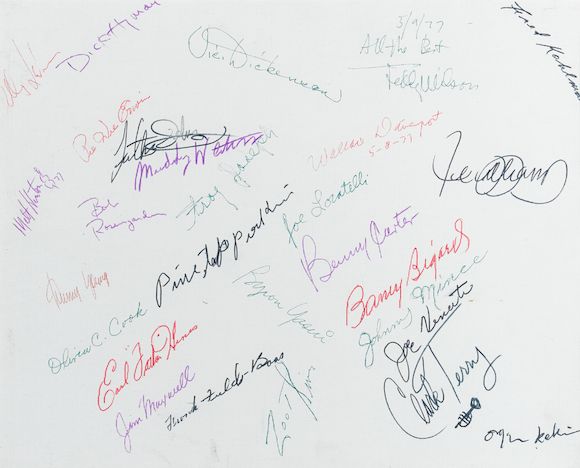 Dick Hyman
Vic Dickenson
3/9/77
All the Best
Teddy Wilson
Pee Wee Erwin
Father John
Muddy Waters
Wallace Davenport
5-8-77
Joe Williams
Bob
Rosengarden
Joe Locatelli
Benny Carter
Pinetop Perkins
Barney Bigard
Johnny Mince
Joe Venuti
Oliver C. Cook
Earl "Fatha" Hines
Jim Maxwell
Frank Fields-Bass
Zoot Sims
Clark Terry